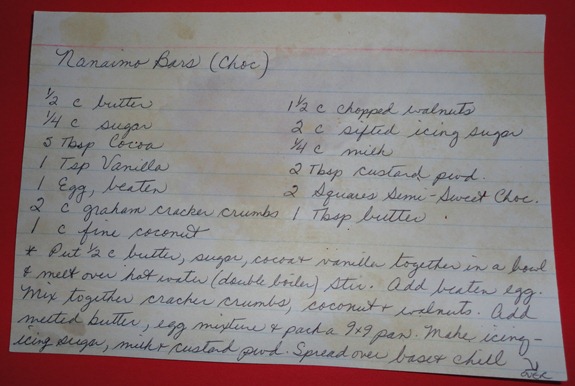 Nanaimo Bars (Choc)
½ c butter
¼ c sugar
5 Tbsp Cocoa
1 Tsp Vanilla
1 Egg, beaten
2 c graham cracker crumbs
1 c fine coconut
1½ c chopped walnuts
2 c sifted icing sugar
¼ c milk
2 Tbsp custard pwd.
2 Squares Semi-Sweet Choc.
1 Tbsp butter
* Put ½ c butter, sugar, cocoa & vanilla together in a bowl
& melt over hot water (double boiler) Stir. Add beaten egg.
Mix together cracker crumbs, coconut & walnuts. Add
melted butter, egg mixture & pack a 9x9 pan. Make icing-
icing sugar, milk & custard pwd. Spread over base & chill
over